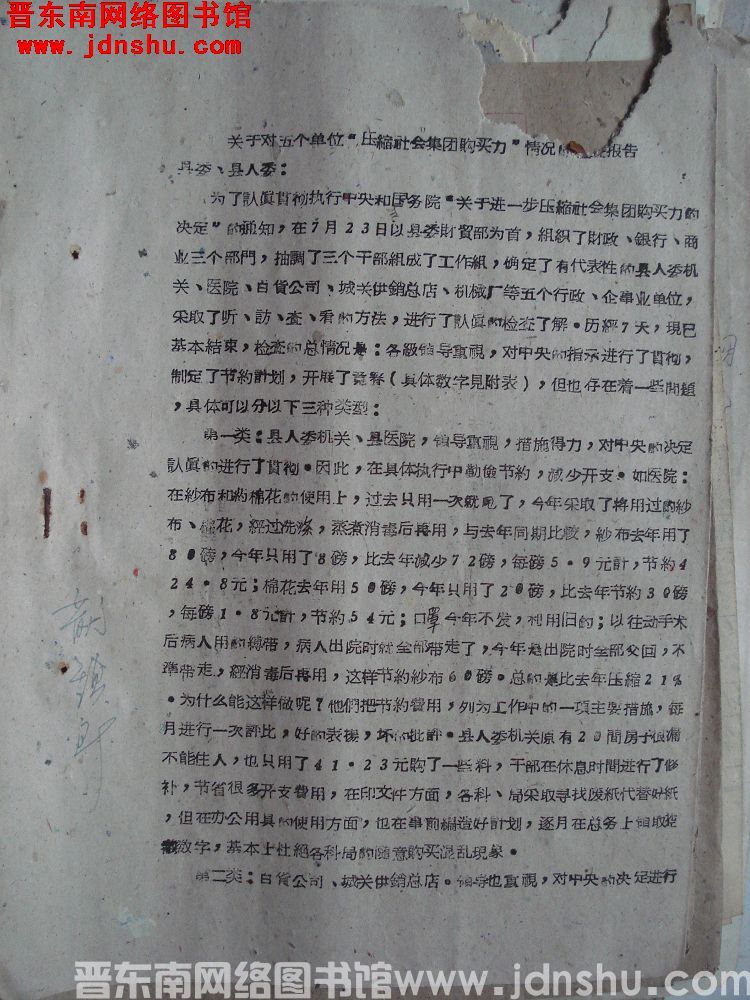 晋东南网络图书馆
www.jdnshu.com
关于对五个单位“压縮社会集团购买力”情况的报告
县委、县人委：
为了訊眞貫彻执行中央和国务院“关于进一步压縮社会集团购买力的
决定”的通知，在7月23日以县委財貿部为首，組织了財政、銀行、商
业三个部門，抽調了三个干部組成了工作組，确定了有代表性的县人委机
关、医院、白貨公司、城关供銷总店、机械厂等五个行政、企事业单位，
采取了听、訪、查、看的方法，进行了訊眞的检查了解。历經7天，現已
基本結束，检查的总情况是：各級领导重視，对中央的指示进行了貫彻，
制定了节約計划，开展了竞賽（具体数字見附表），但也存在着一些問題
，具体可以分以下三种类型：
第一类：县人委机关、县医院，领导重視，措施得力，对中央的决定
訊眞的进行了貫彻。因此，在具体执行中勤儉节約，减少开支。如医院：
在紗布和葯棉花的使用上，过去只用一次就甩了，今年采取了将用过的紗
布、棉花，經过洗涤，蒸煮消毒后再用，与去年同期比較，紗布去年用了
80磅，今年只用了8磅，比去年减少72磅，每磅5。9元計，节約4
24。8元；棉花去年用50磅，今年只用了20磅，比去年节約30磅
，每磅1。8元計，节約54元；口罩今年不发，利用旧的；以往动手术
后病人用的綳带，病人出院时就全部带走了，今年是出院时全部交回，不
準带走，經消毒后再用，这样节約紗布60磅。总的是比去年压縮21%
。为什么能这样做呢？他們把节約費用，列为工作中的一項主要措施，每
月进行一次評比，好的表揚，坏的批評。县人委机关原有20間房子很漏
不能住人，也只用了41。23元购了一些料，干部在休息时間进行了修
补，节省很多开支費用，在印文件方面，各科、局采取寻找废紙代替好紙
，但在办公用具的使用方面，也在事前編造好計划，逐月在总务上領取
数字，基本上杜絕各科局的随意购买混乱現象。
第二类：白貨公司、城关供銷总店。领导也重視，对中央的决定进行
晋东南网络图书馆www.jdnshu.com